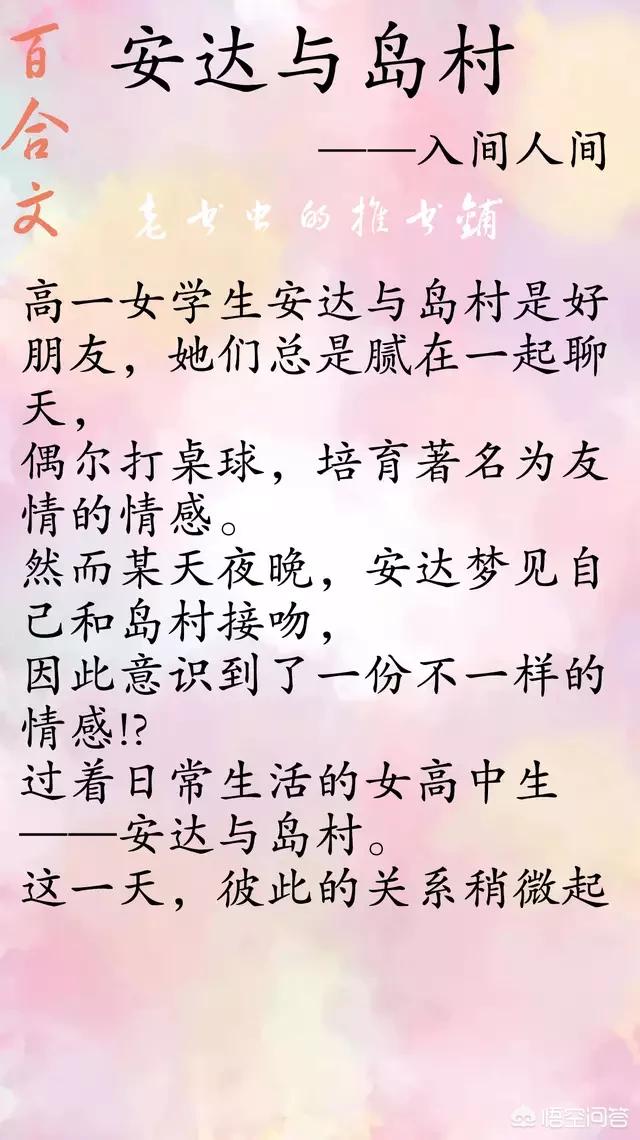 百合文
安达与岛村
——入间人间
老书虫的推书鋪
高一女学生安达与岛村是好
朋友，她们总是腻在一起聊
天，
偶尔打桌球，培育著名为友
情的情感。
然而某天夜晚，安达梦见自
己和岛村接吻，
因此意识到了一份不一样的
情感!?
过着日常生活的女高中生
——安达与岛村。
这一天，彼此的关系稍微起
悟空问答